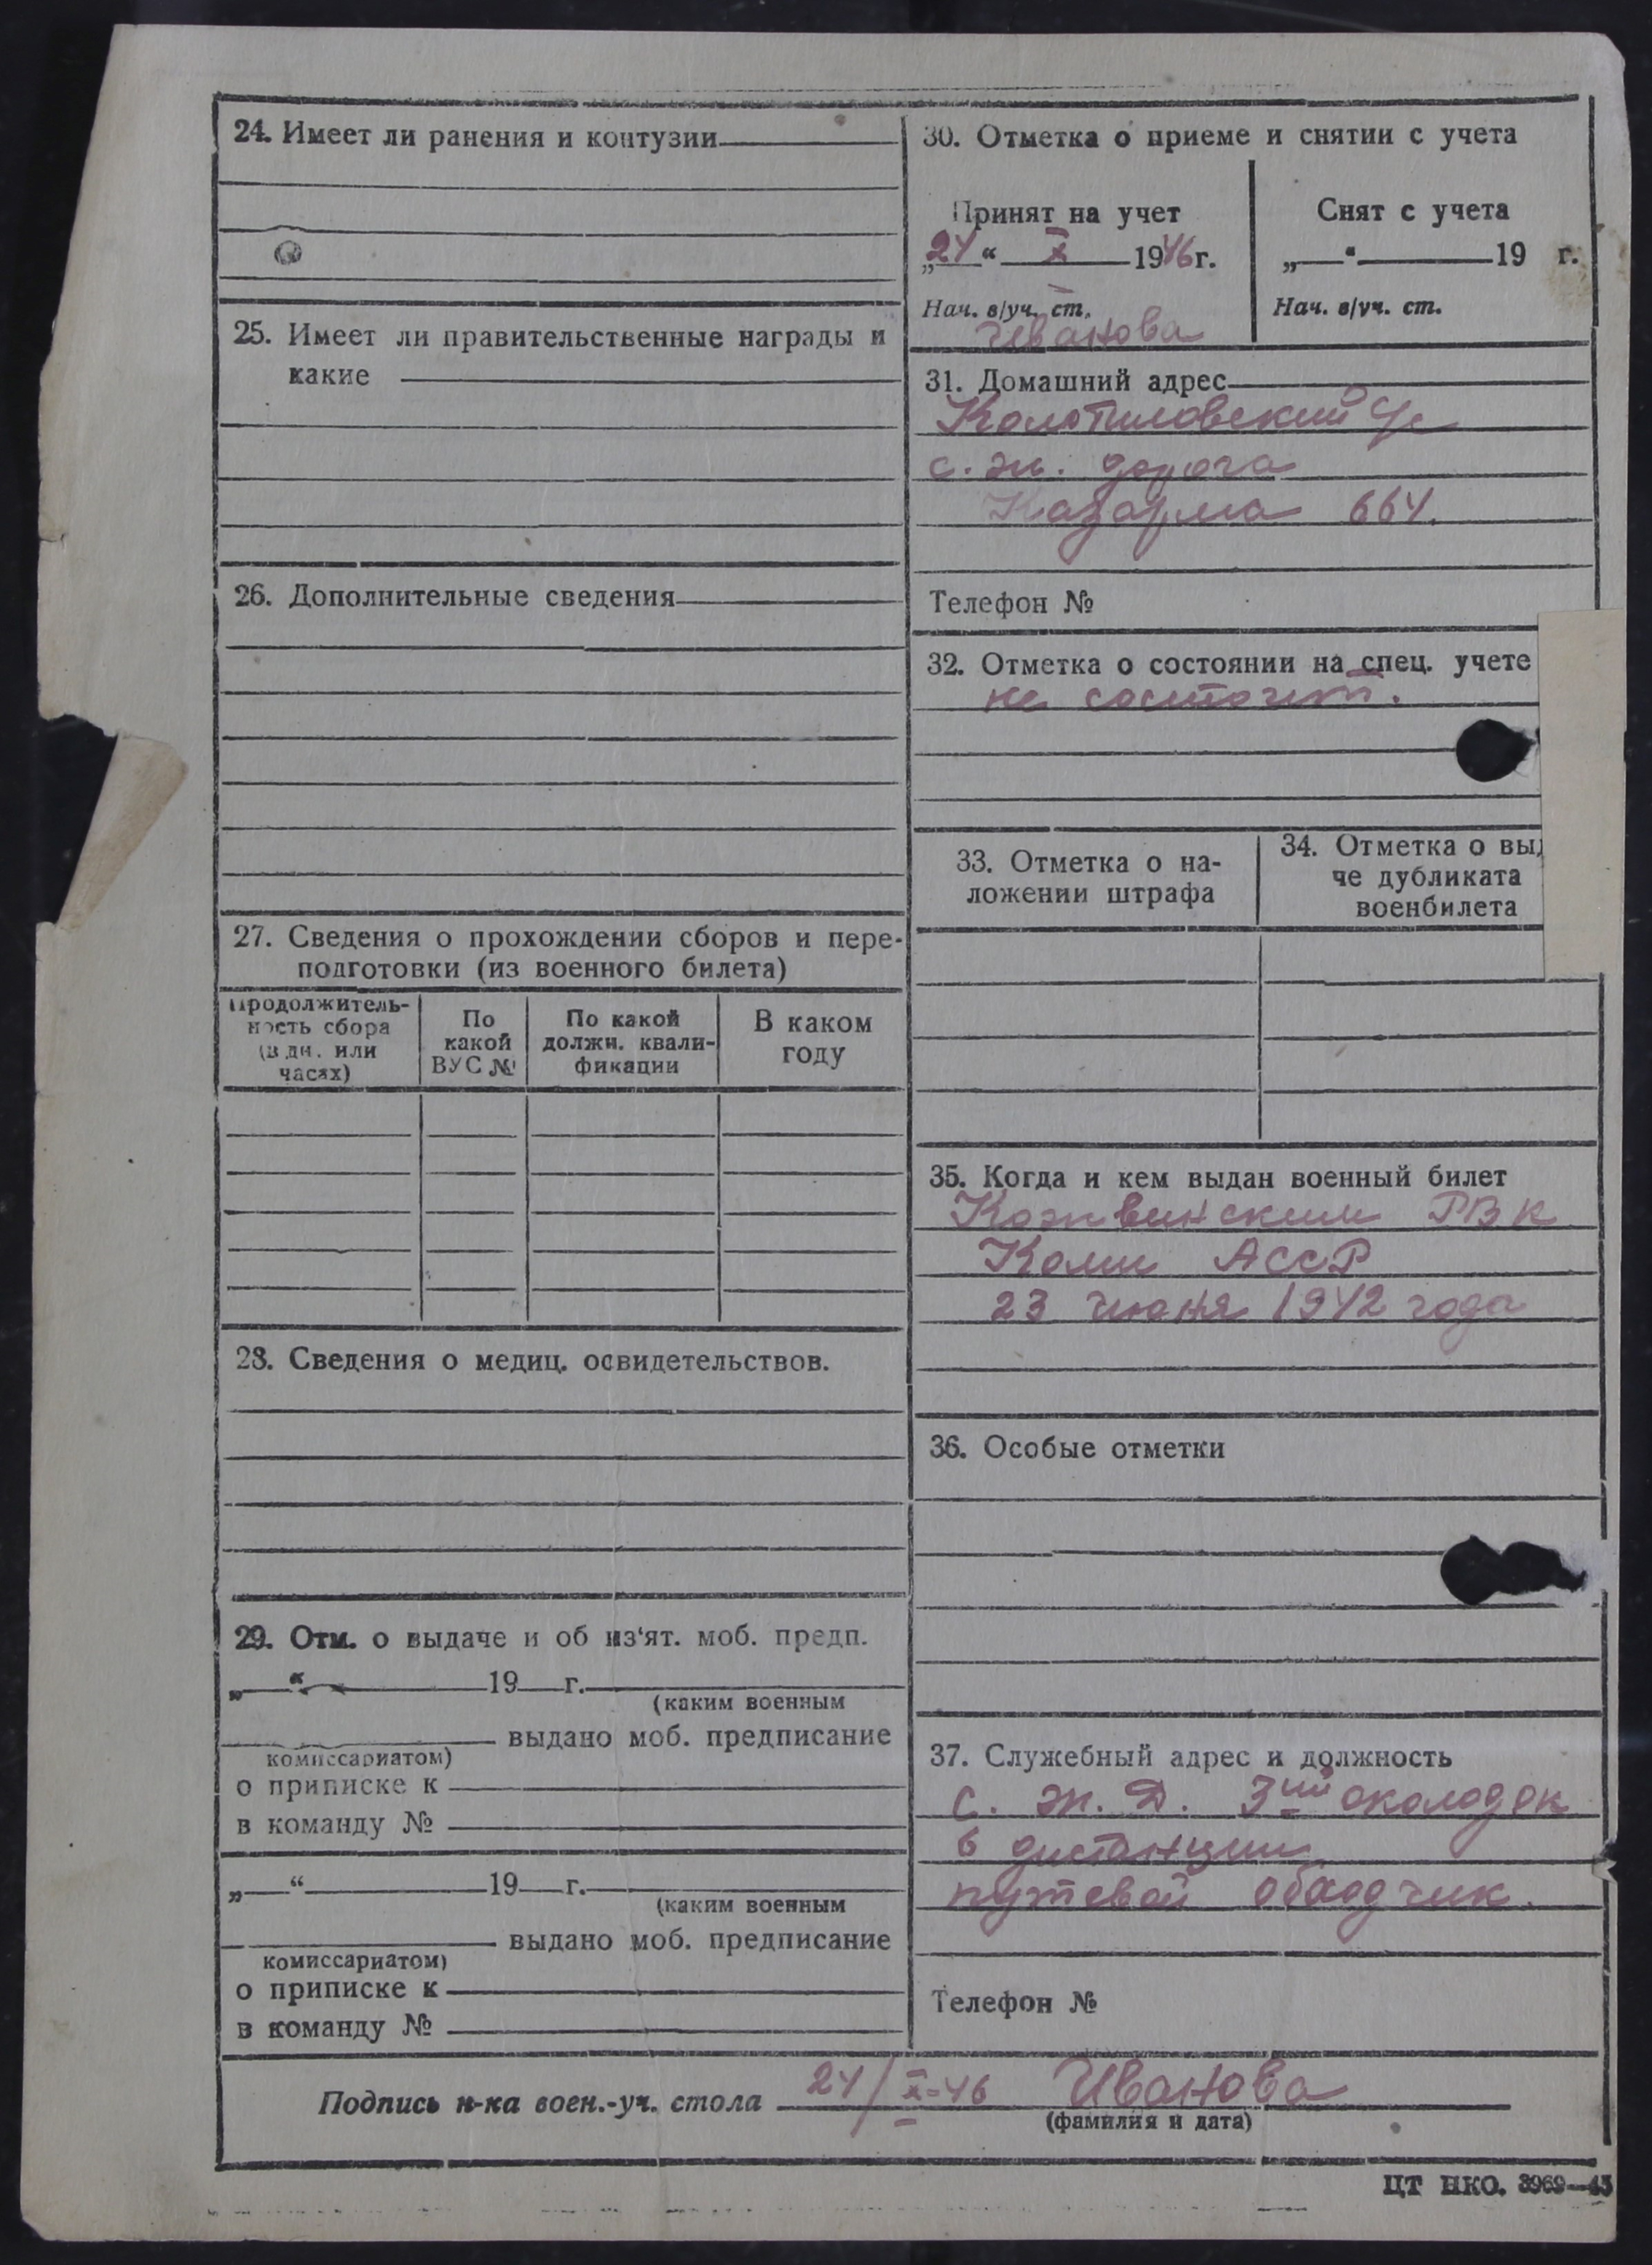 24. Имеет ли ранения и контузии
25. Имеет ли правительственные награды и
какие
26. Дополнительные сведения
27. Сведения о прохождении сборов и пере-
подготовки (из военного билета)
Продолжитель-
ность сбора
(в дн. или
часах)
По
какой
ВУС №
По какой
должн. квали-
фикации
В каком
году
28. Сведения о медиц. освидетельствов.
29. Отм. о выдаче и об из‘ят. моб. предп.
„ “ 19 г.
(каким военным
выдано моб. предписание
комиссариатом)
о приписке к
в команду №
„ “ 19 г.
(каким военным
выдано моб. предписание
комиссариатом)
о приписке к
в команду №
30. Отметка о приеме и снятии с учета
Принят на учет
„24“ X 1946 г.
Нач. в/уч. ст.
Иванова
Снят с учета
„ “ 19 г.
Нач. в/уч. ст.
31. Домашний адрес
с. ж. дорога
Казарма 664.
Телефон №
32. Отметка о состоянии на спец. учете
не состоит.
33. Отметка о на-
ложении штрафа
34. Отметка о выд
че дубликата
военбилета
35. Когда и кем выдан военный билет
Кожвинским РВК
Коми АССР
23 июня 1942 года
36. Особые отметки
37. Служебный адрес и должность
с. ж. д. 3ий околодок
6 дистанции
путевой обходчик.
Телефон №
Подпись н-ка воен.-уч. стола 24/X-46 Иванова
(фамилия и дата)
ЦТ НКО. 3969—43